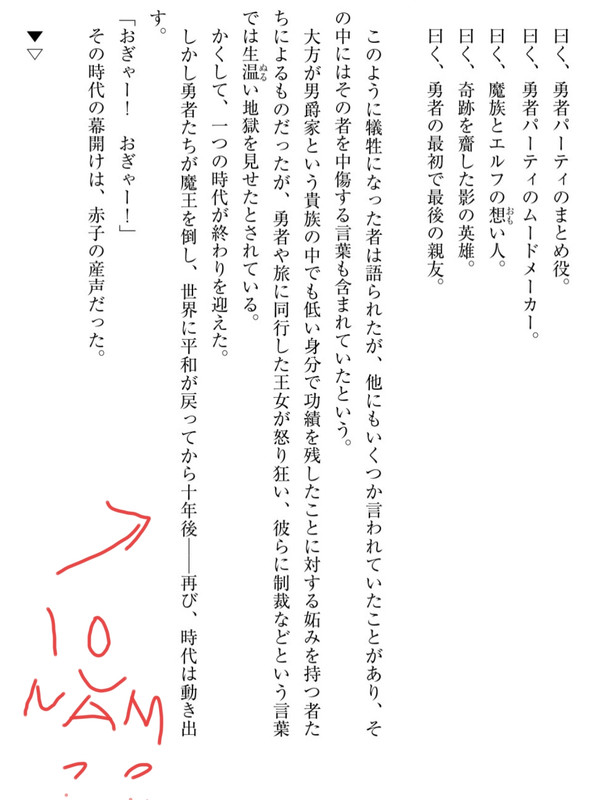 曰く、勇者パーティのまとめ役。
曰く、勇者パーティのムードメーカー。
曰く、魔族とエルフの想い人。
曰く、奇跡を齎した影の英雄。
曰く、勇者の最初で最後の親友。
このように犠牲になった者は語られたが、他にもいくつか言われていたことがあり、そ
の中にはその者を中傷する言葉も含まれていたという。
大方が男爵家という貴族の中でも低い身分で功績を残したことに対する妬みを持つ者た
ちによるものだったが、勇者や旅に同行した王女が怒り狂い、彼らに制裁などという言葉
では生温い地獄を見せたとされている。
かくして、一つの時代が終わりを迎えた。
しかし勇者たちが魔王を倒し、世界に平和が戻ってから十年後――再び、時代は動き出
す。
「おぎゃー！　おぎゃー！」
その時代の幕開けは、赤子の産声だった。
▼▽
10
NĂM
??